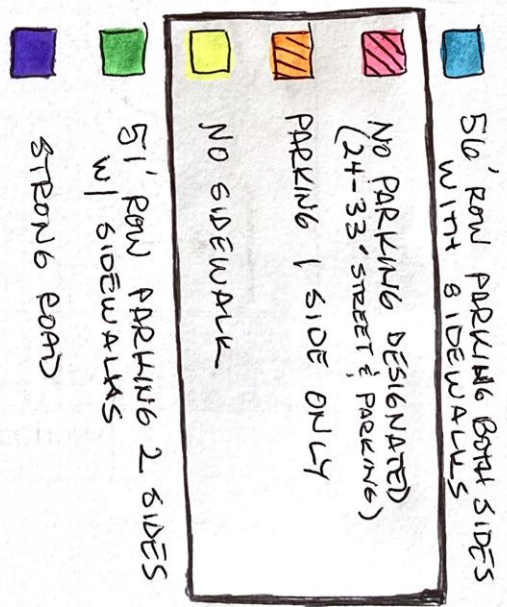 56' ROW PARKING BOTH SIDES
WITH SIDEWALKS
NO PARKING DESIGNATED
(24-33' STREET & PARKING)
PARKING 1 SIDE ONLY
NO SIDEWALK
51' ROW PARKING 2 SIDES
W/ SIDEWALKS
STRONG ROAD